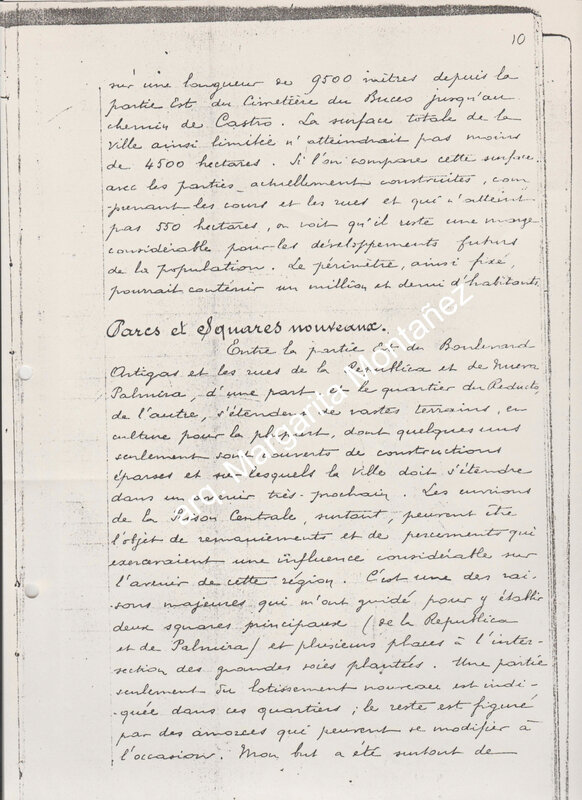 10
sur une longueur de 9500 mètres depuis la
partie Est du Cimetière du Buceo jusqu'au
chemin de Castro. La surface totale de la
ville ainsi limitée n'atteindrait pas moins
de 4500 hectares. Si l'on compare cette surface
avec les parties actuellement construites, com-
prenant les cours et les rues et qui n'atteint
pas 550 hectares, on voit qu'il reste une marge
considérable pour les développements futurs
de la population. Le périmètre, ainsi fixé
pourrait contenir un million et demi d'habitants
Parcs et Squares nouveaux.
Entre la partie Est du Boulevard
Artigas et les rues de la Republica et de Nueva
Palmira, d'une part et le quartier du Reducto,
de l'autre, s'étendent de vastes terrains, en
culture pour la plupart, dont quelques uns
seulement sont couverts de constructions
éparses et sur lesquels la Ville doit s'étendre
dans un avenir très-prochain. Les environs
de la Prison Centrale, surtout, peuvent être
l'objet de remaniements et de percements qui
exerceraient une influence considérable sur
l'avenir de cette région. C'est une des rai-
sons majeures qui m'ont guidé pour y établir
deux squares principaux (de la Republica
et de Palmira) et plusieurs places à l'inter-
section des grandes voies plantées. Une partie
seulement du lotissement nouveau est indi-
quée dans ces quartiers; le reste est figuré
par des amorces qui peuvent se modifier à
l'occasion. Mon but a été surtout de
arq. Margarita Montañez